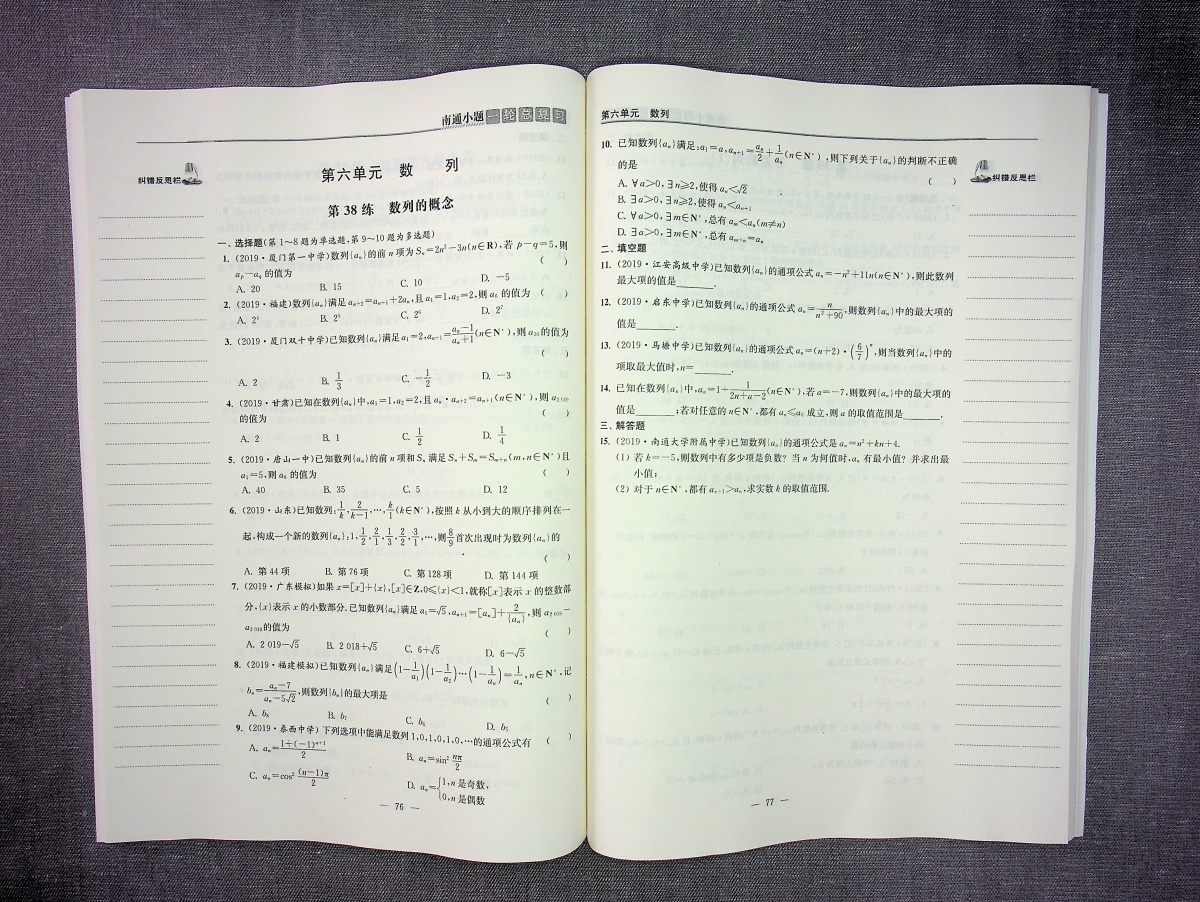 南通小题一轮总复习
纠错反思栏
第六单元 数 列
第 38 练 数列的概念
一、选择题(第 1～8 题为单选题,第 9～10 题为多选题)
1. (2019·厦门第一中学)数列{aₙ}的前 n 项为 Sₙ=2n²-3n(n∈R),若 p-q=5,则
aₚ-a_q 的值为 ( )
A. 20 B. 15 C. 10 D. -5
2. (2019·福建)数列{aₙ}满足 aₙ₊₂=aₙ₊₁+2aₙ,且 a₁=1,a₂=2,则 a₆ 的值为 ( )
A. 2⁴ B. 2⁵ C. 2⁶ D. 2⁷
3. (2019·厦门双十中学)已知数列{aₙ}满足 a₁=2,aₙ₊₁=(aₙ-1)/(aₙ+1)(n∈N*),则 a₃₀ 的值为
( )
A. 2 B. 1/3 C. -1/2 D. -3
4. (2019·甘肃)已知在数列{aₙ}中,a₁=1,a₂=2,且 aₙ·aₙ₊₂=aₙ₊₁(n∈N*),则 a₂ ₀₁₉
的值为 ( )
A. 2 B. 1 C. 1/2 D. 1/4
5. (2019·唐山一中)已知数列{aₙ}的前 n 项和 Sₙ 满足 Sₙ+Sₘ=Sₘ₊ₙ(m,n∈N*)且
a₁=5,则 a₈ 的值为 ( )
A. 40 B. 35 C. 5 D. 12
6. (2019·山东)已知数列:1/k,2/(k-1),…,k/1(k∈N*),按照 k 从小到大的顺序排列在一
起,构成一个新的数列{aₙ}:1,1/2,2/1,1/3,2/2,3/1,…,则8/9首次出现时为数列{aₙ}的
( )
A. 第 44 项 B. 第 76 项 C. 第 128 项 D. 第 144 项
7. (2019·广东模拟)如果 x=[x]+{x},[x]∈Z,0≤{x}<1,就称[x]表示 x 的整数部
分,{x}表示 x 的小数部分.已知数列{aₙ}满足 a₁=√5,aₙ₊₁=[aₙ]+2/{aₙ},则 a₂ ₀₁₉-
a₂ ₀₁₈的值为 ( )
A. 2 019-√5 B. 2 018+√5 C. 6+√5 D. 6-√5
8. (2019·福建模拟)已知数列{aₙ}满足(1-1/a₁)(1-1/a₂)…(1-1/aₙ)=1/aₙ,n∈N*,记
bₙ=(aₙ-7)/(aₙ-5√2),则数列{bₙ}的最大项是 ( )
A. b₈ B. b₇ C. b₆ D. b₅
9. (2019·泰西中学)下列选项中能满足数列 1,0,1,0,1,0,…的通项公式有 ( )
A. aₙ=(1+(-1)ⁿ⁺¹)/2 B. aₙ=sin² nπ/2
C. aₙ=cos² (n-1)π/2 D. aₙ={1,n 是奇数,
0,n 是偶数
— 76 —
第六单元 数列
纠错反思栏
10. 已知数列{aₙ}满足:a₁=a,aₙ₊₁=aₙ/2+1/aₙ(n∈N*),则下列关于{aₙ}的判断不正确
的是 ( )
A. ∀a>0,∃n≥2,使得 aₙ<√2
B. ∃a>0,∃n≥2,使得 aₙ<aₙ₊₁
C. ∀a>0,∃m∈N*,总有 aₘ<aₙ(m≠n)
D. ∃a>0,∃m∈N*,总有 aₘ₊ₙ=aₙ
二、填空题
11. (2019·江安高级中学)已知数列{aₙ}的通项公式 aₙ=-n²+11n(n∈N*),则此数列
最大项的值是______.
12. (2019·启东中学)已知数列{aₙ}的通项公式 aₙ=n/(n²+90),则数列{aₙ}中的最大项的
值是______.
13. (2019·马塘中学)已知数列{aₙ}的通项公式 aₙ=(n+2)·(6/7)ⁿ,则当数列{aₙ}中的
项取最大值时,n=______.
14. 已知在数列{aₙ}中,aₙ=1+1/(2n+a-2)(n∈N*),若 a=-7,则数列{aₙ}中的最大项的
值是______;若对任意的 n∈N*,都有 aₙ≤a₆ 成立,则 a 的取值范围是______.
三、解答题
15. (2019·南通大学附属中学)已知数列{aₙ}的通项公式是 aₙ=n²+kn+4.
(1) 若 k=-5,则数列中有多少项是负数? 当 n 为何值时,aₙ 有最小值? 并求出最
小值;
(2) 对于 n∈N*,都有 aₙ₊₁>aₙ,求实数 k 的取值范围.
— 77 —